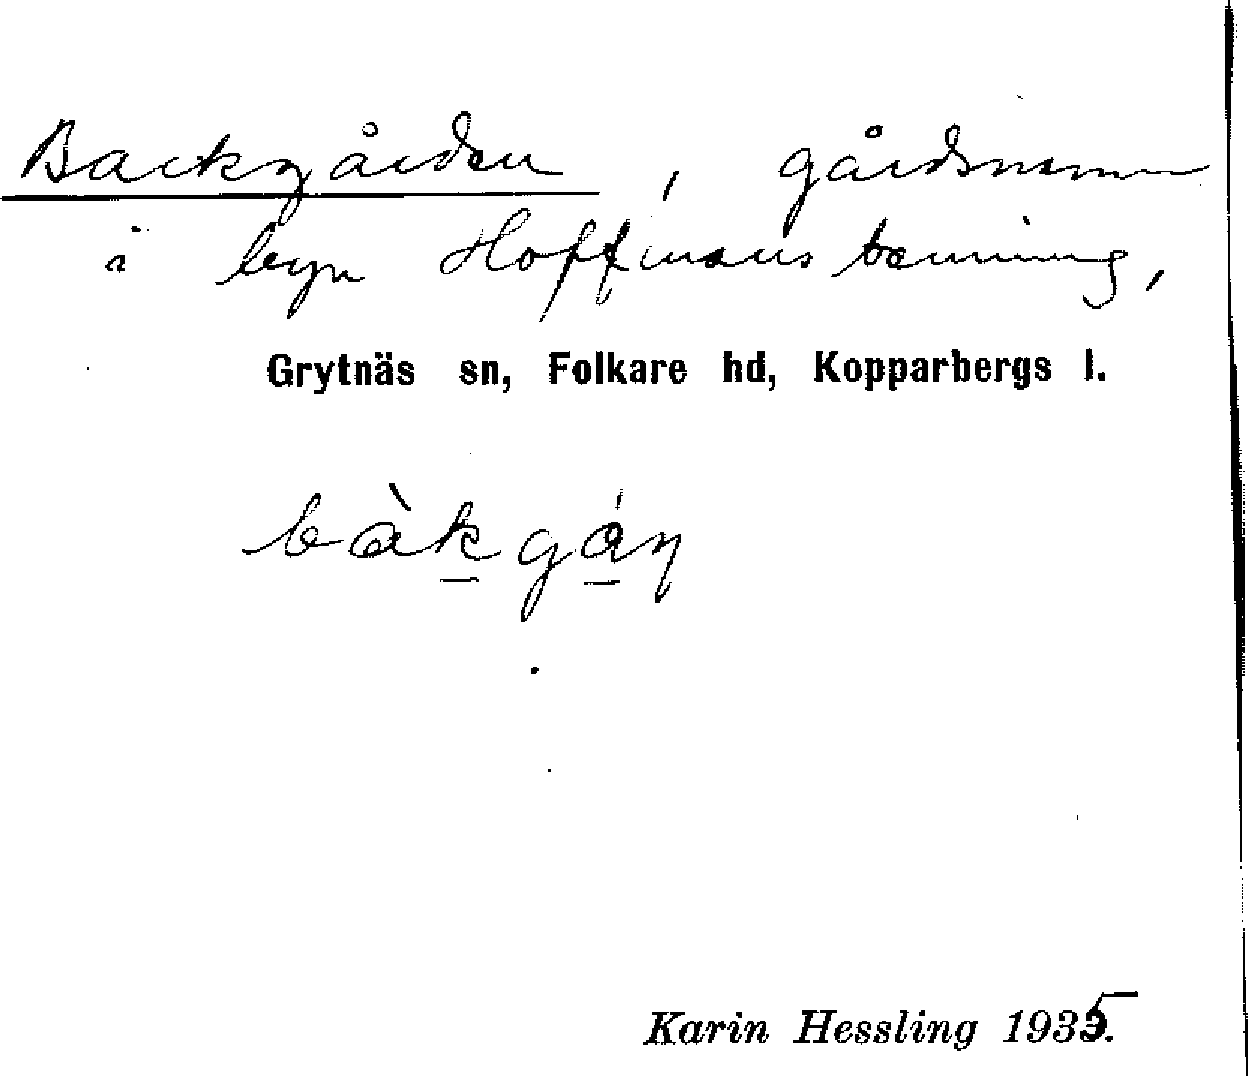 Backgården, gårdsnamn
i byn Hoffmansbenning,
Grytnäs sn, Folkare hd, Kopparbergs l.
bàkgán
Karin Hessling 1935.